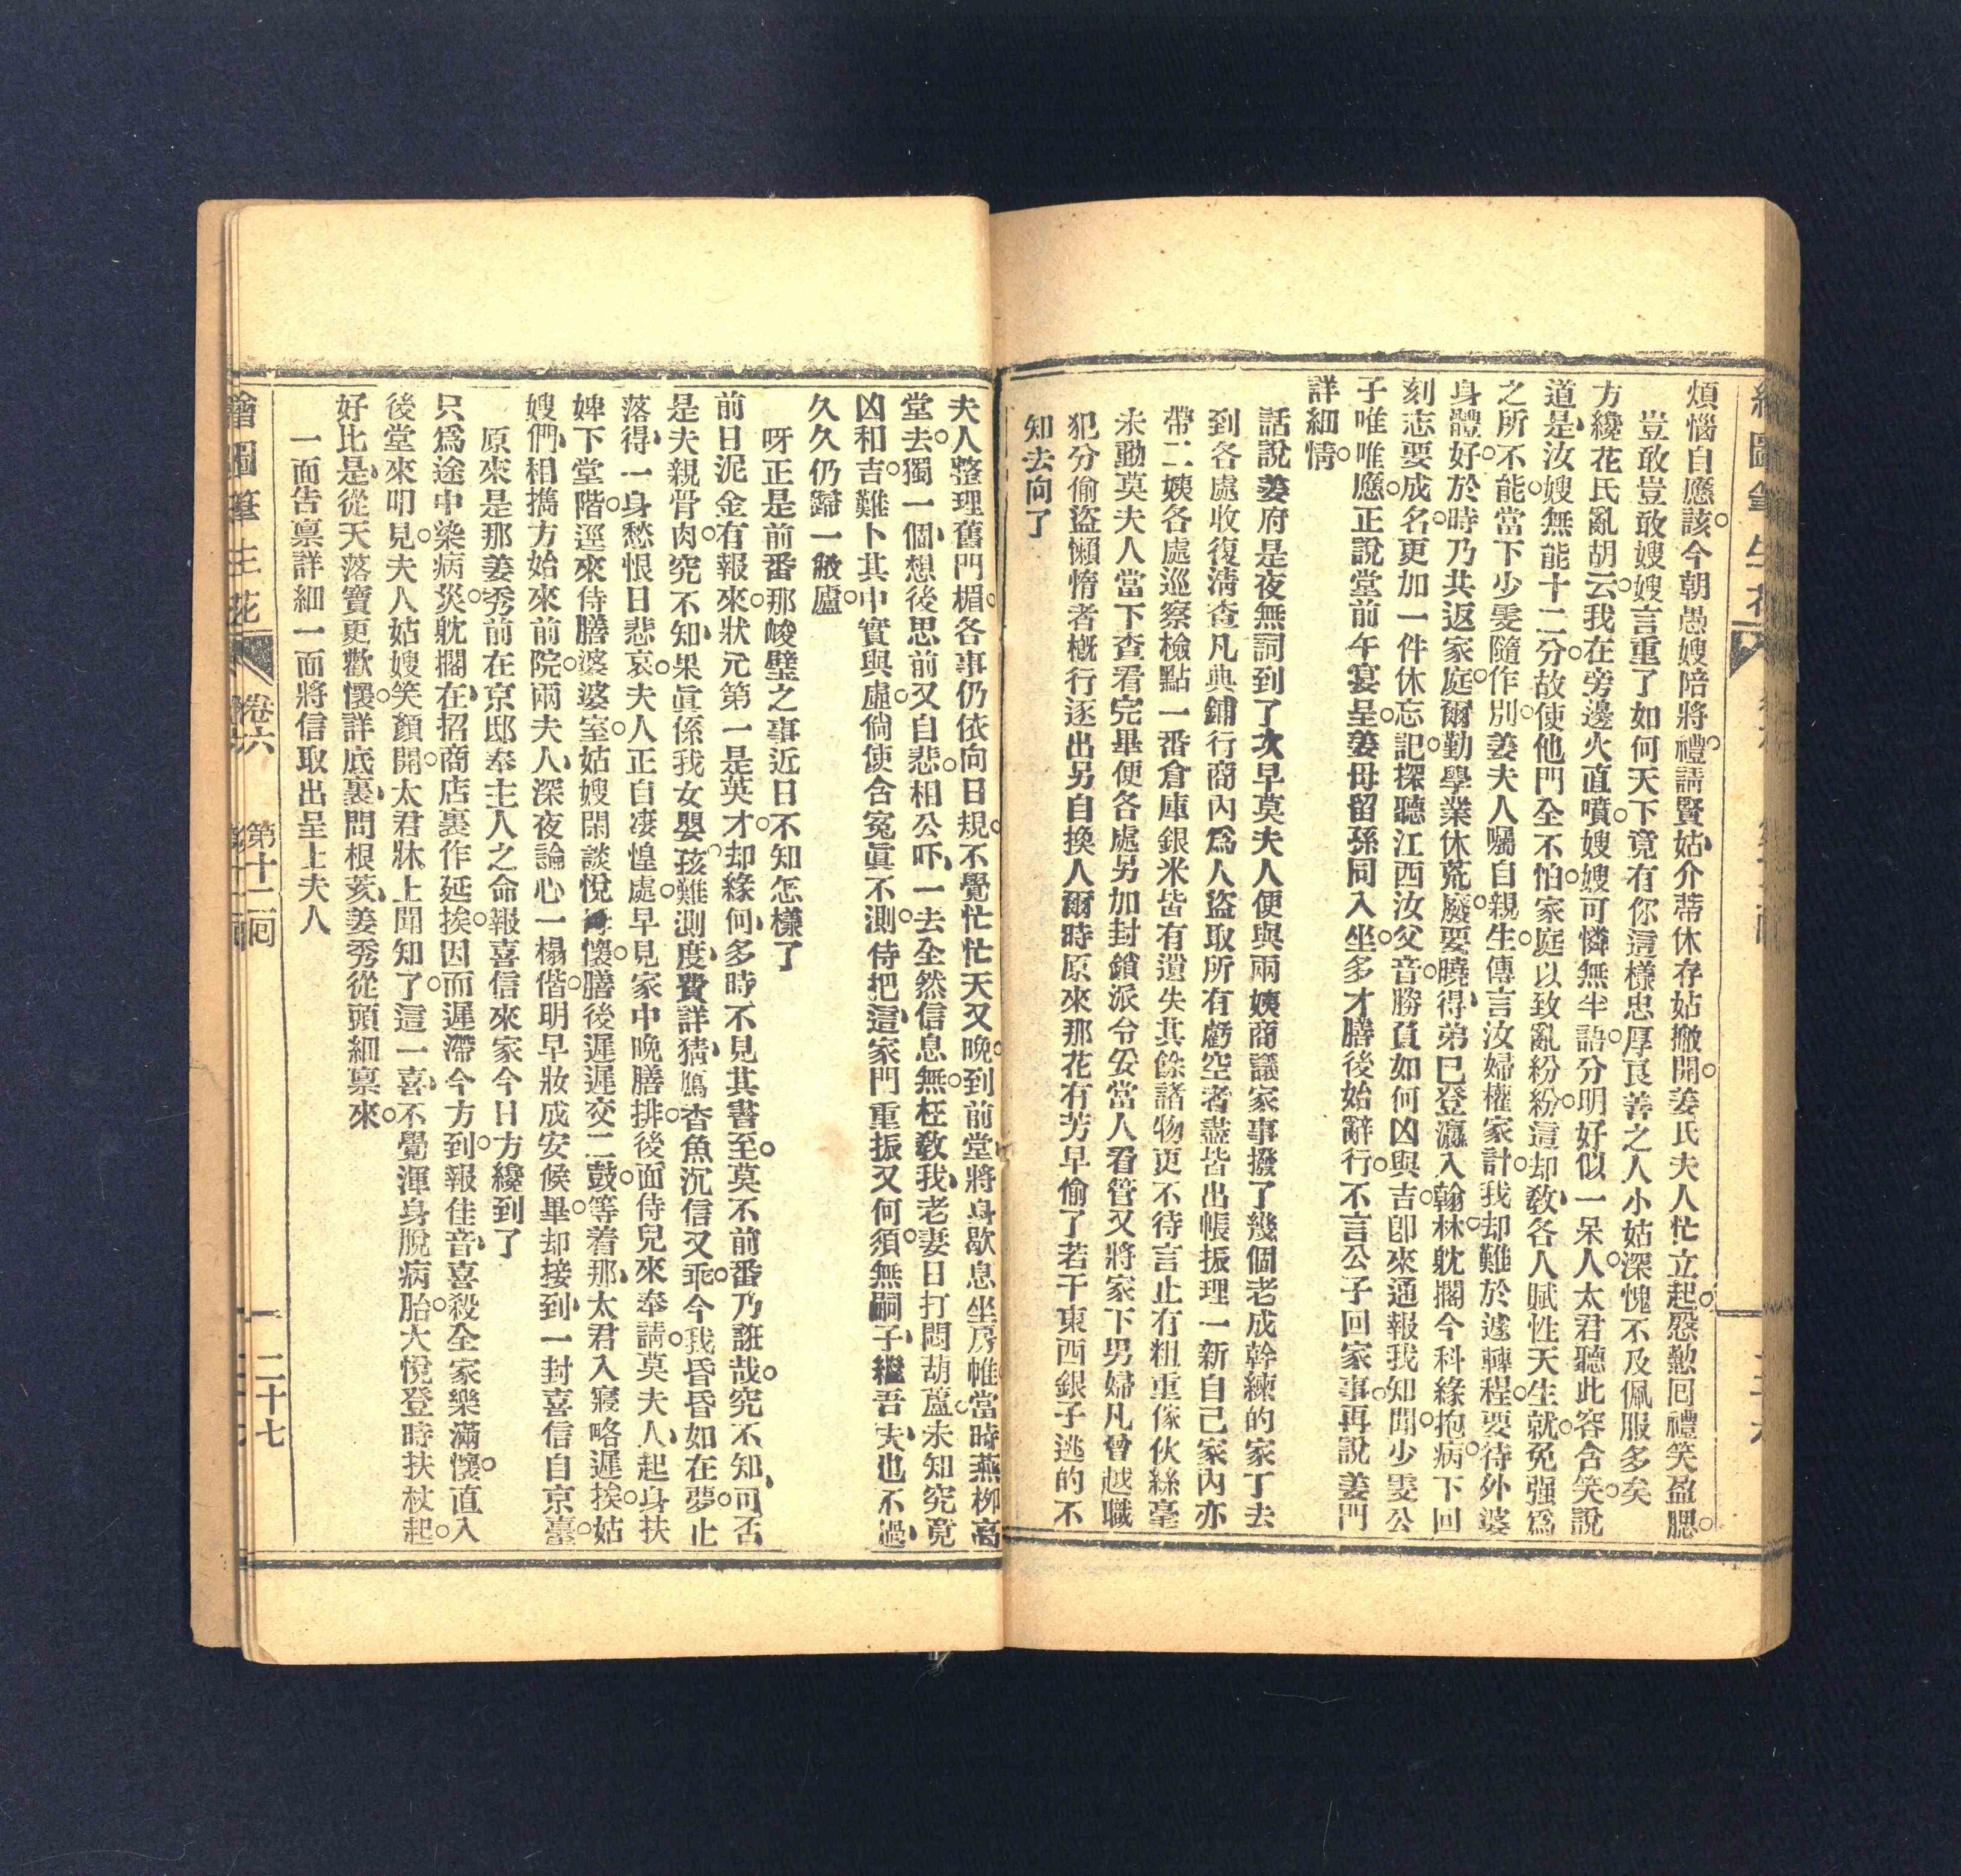 煩惱自應該。今朝愚嫂陪將禮。請賢姑、介蒂休存姑撇開。姜氏夫人忙立起。慇懃回禮笑盈腮。
豈敢豈敢嫂嫂言重了如何天下竟有你這樣忠厚良善之人小姑深愧不及佩服多矣
方纔花氏亂胡云、我在旁邊火直噴。嫂嫂可憐無半語。分明好似一呆人。太君聽此容含笑。說
道是、汝嫂無能十二分。故使他門全不怕。家庭以致亂紛紛。這却教、各人賦性天生就。免强爲
之所不能。當下少雯隨作別。姜夫人囑自親生。傳言汝婦權家計。我却難於遽轉程。要待外婆
身體好。於時乃共返家庭。爾勤學業休荒廢。要曉得、弟已登瀛入翰林。躭擱今科緣抱病。下回
刻志要成名。更加一件休忘記。探聽江西汝父音。勝負如何凶與吉。卽來通報我知聞。少雯公
子唯唯應。正說堂前午宴呈。姜母留孫同入坐。多才膳後始辭行。不言公子回家事。再說姜門
詳細情。
話說姜府是夜無詞到了次早莫夫人便與兩姨商議家事撥了幾個老成幹練的家丁去
到各處收復淸查凡典鋪行商內爲人盜取所有虧空者盡皆出帳振理一新自己家內亦
帶二姨各處巡察檢點一番倉庫銀米皆有遺失其餘諸物更不待言止有粗重傢伙絲毫
未動莫夫人當下查看完畢便各處另加封鎖派令妥當人看管又將家下男婦凡曾越職
犯分偷盜懶惰者概行逐出另自換人爾時原來那花有芳早偷了若干東西銀子逃的不
知去向了
夫人整理舊門楣。各事仍依向日規。不覺忙忙天又晚。到前堂、將身歇息坐房帷。當時燕柳高
堂去。獨一個、想後思前又自悲。相公吓、一去全然信息無。枉教我、老妻日打悶葫蘆。未知究竟
凶和吉。難卜其中實與虛。倘使含冤眞不測。侍把這、家門重振又何須。無嗣子、繼吾夫、也不過、
久久仍歸一敝廬。
呀正是前番那峻璧之事近日不知怎樣了
前日泥金有報來。狀元第一是英才。却緣何、多時不見其書至。莫不前番乃誑哉。究不知、可否
是夫親骨肉。究不知、果眞係我女嬰孩。難測度、費詳猜、鴈杳魚沉信又乖。今我昏昏如在夢。止
落得、一身愁恨日悲哀。夫人正自淒惶處。早見家中晚膳排。後面侍兒來奉請。莫夫人、起身扶
婢下堂階。逕來侍膳婆婆室。姑嫂閑談悅母懷。膳後遲遲交二鼓。等着那、太君入寢略遲挨。姑
嫂們、相攜方始來前院。兩夫人、深夜論心一榻偕。明早妝成安候畢。却接到、一封喜信自京臺。
原來是那姜秀前在京邸奉主人之命報喜信來家今日方纔到了
只爲途中染病災。躭擱在、招商店裏作延挨。因而遲滯今方到。報佳音、喜殺全家樂滿懷。直入
後堂來叩見。夫人姑嫂笑顏開。太君牀上聞知了。這一喜、不覺渾身脫病胎。大悅登時扶杖起。
好比是、從天落寶更歡懷。詳底裏、問根荄、姜秀從頭細稟來。
一面告稟詳細一面將信取出呈上夫人
繪圖筆生花 卷六 第十二回 二十七